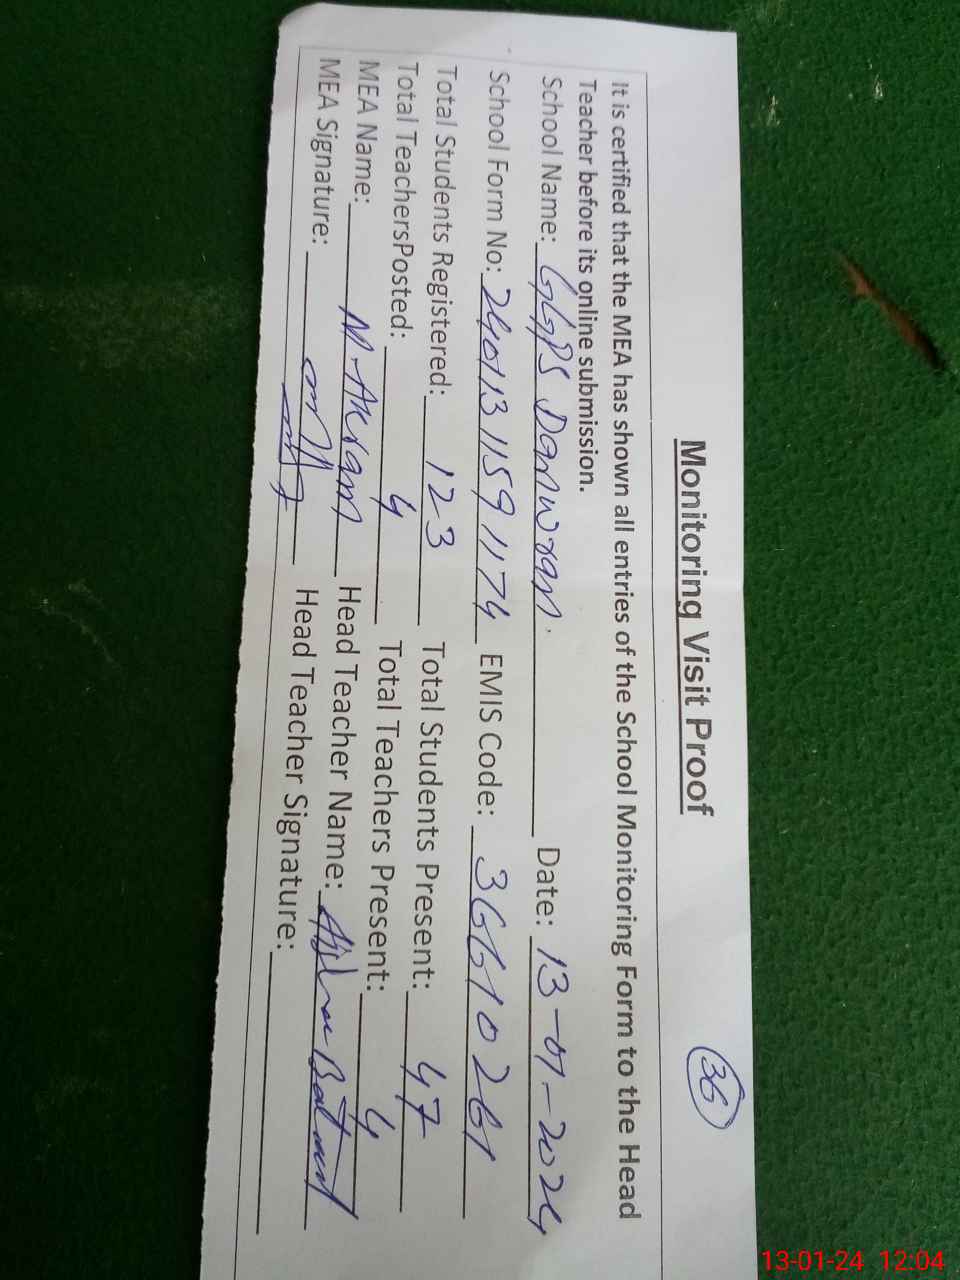 Monitoring Visit Proof
36
It is certified that the MEA has shown all entries of the School Monitoring Form to the Head
Teacher before its online submission.
School Name: GGPS Danwran. Date: 13-01-2024
School Form No: 240113115911174 EMIS Code: 36610261
Total Students Registered: 123 Total Students Present: 47
Total TeachersPosted: 4 Total Teachers Present: 4
MEA Name: M-Akram Head Teacher Name:
MEA Signature: Head Teacher Signature:
13-01-24 12:04